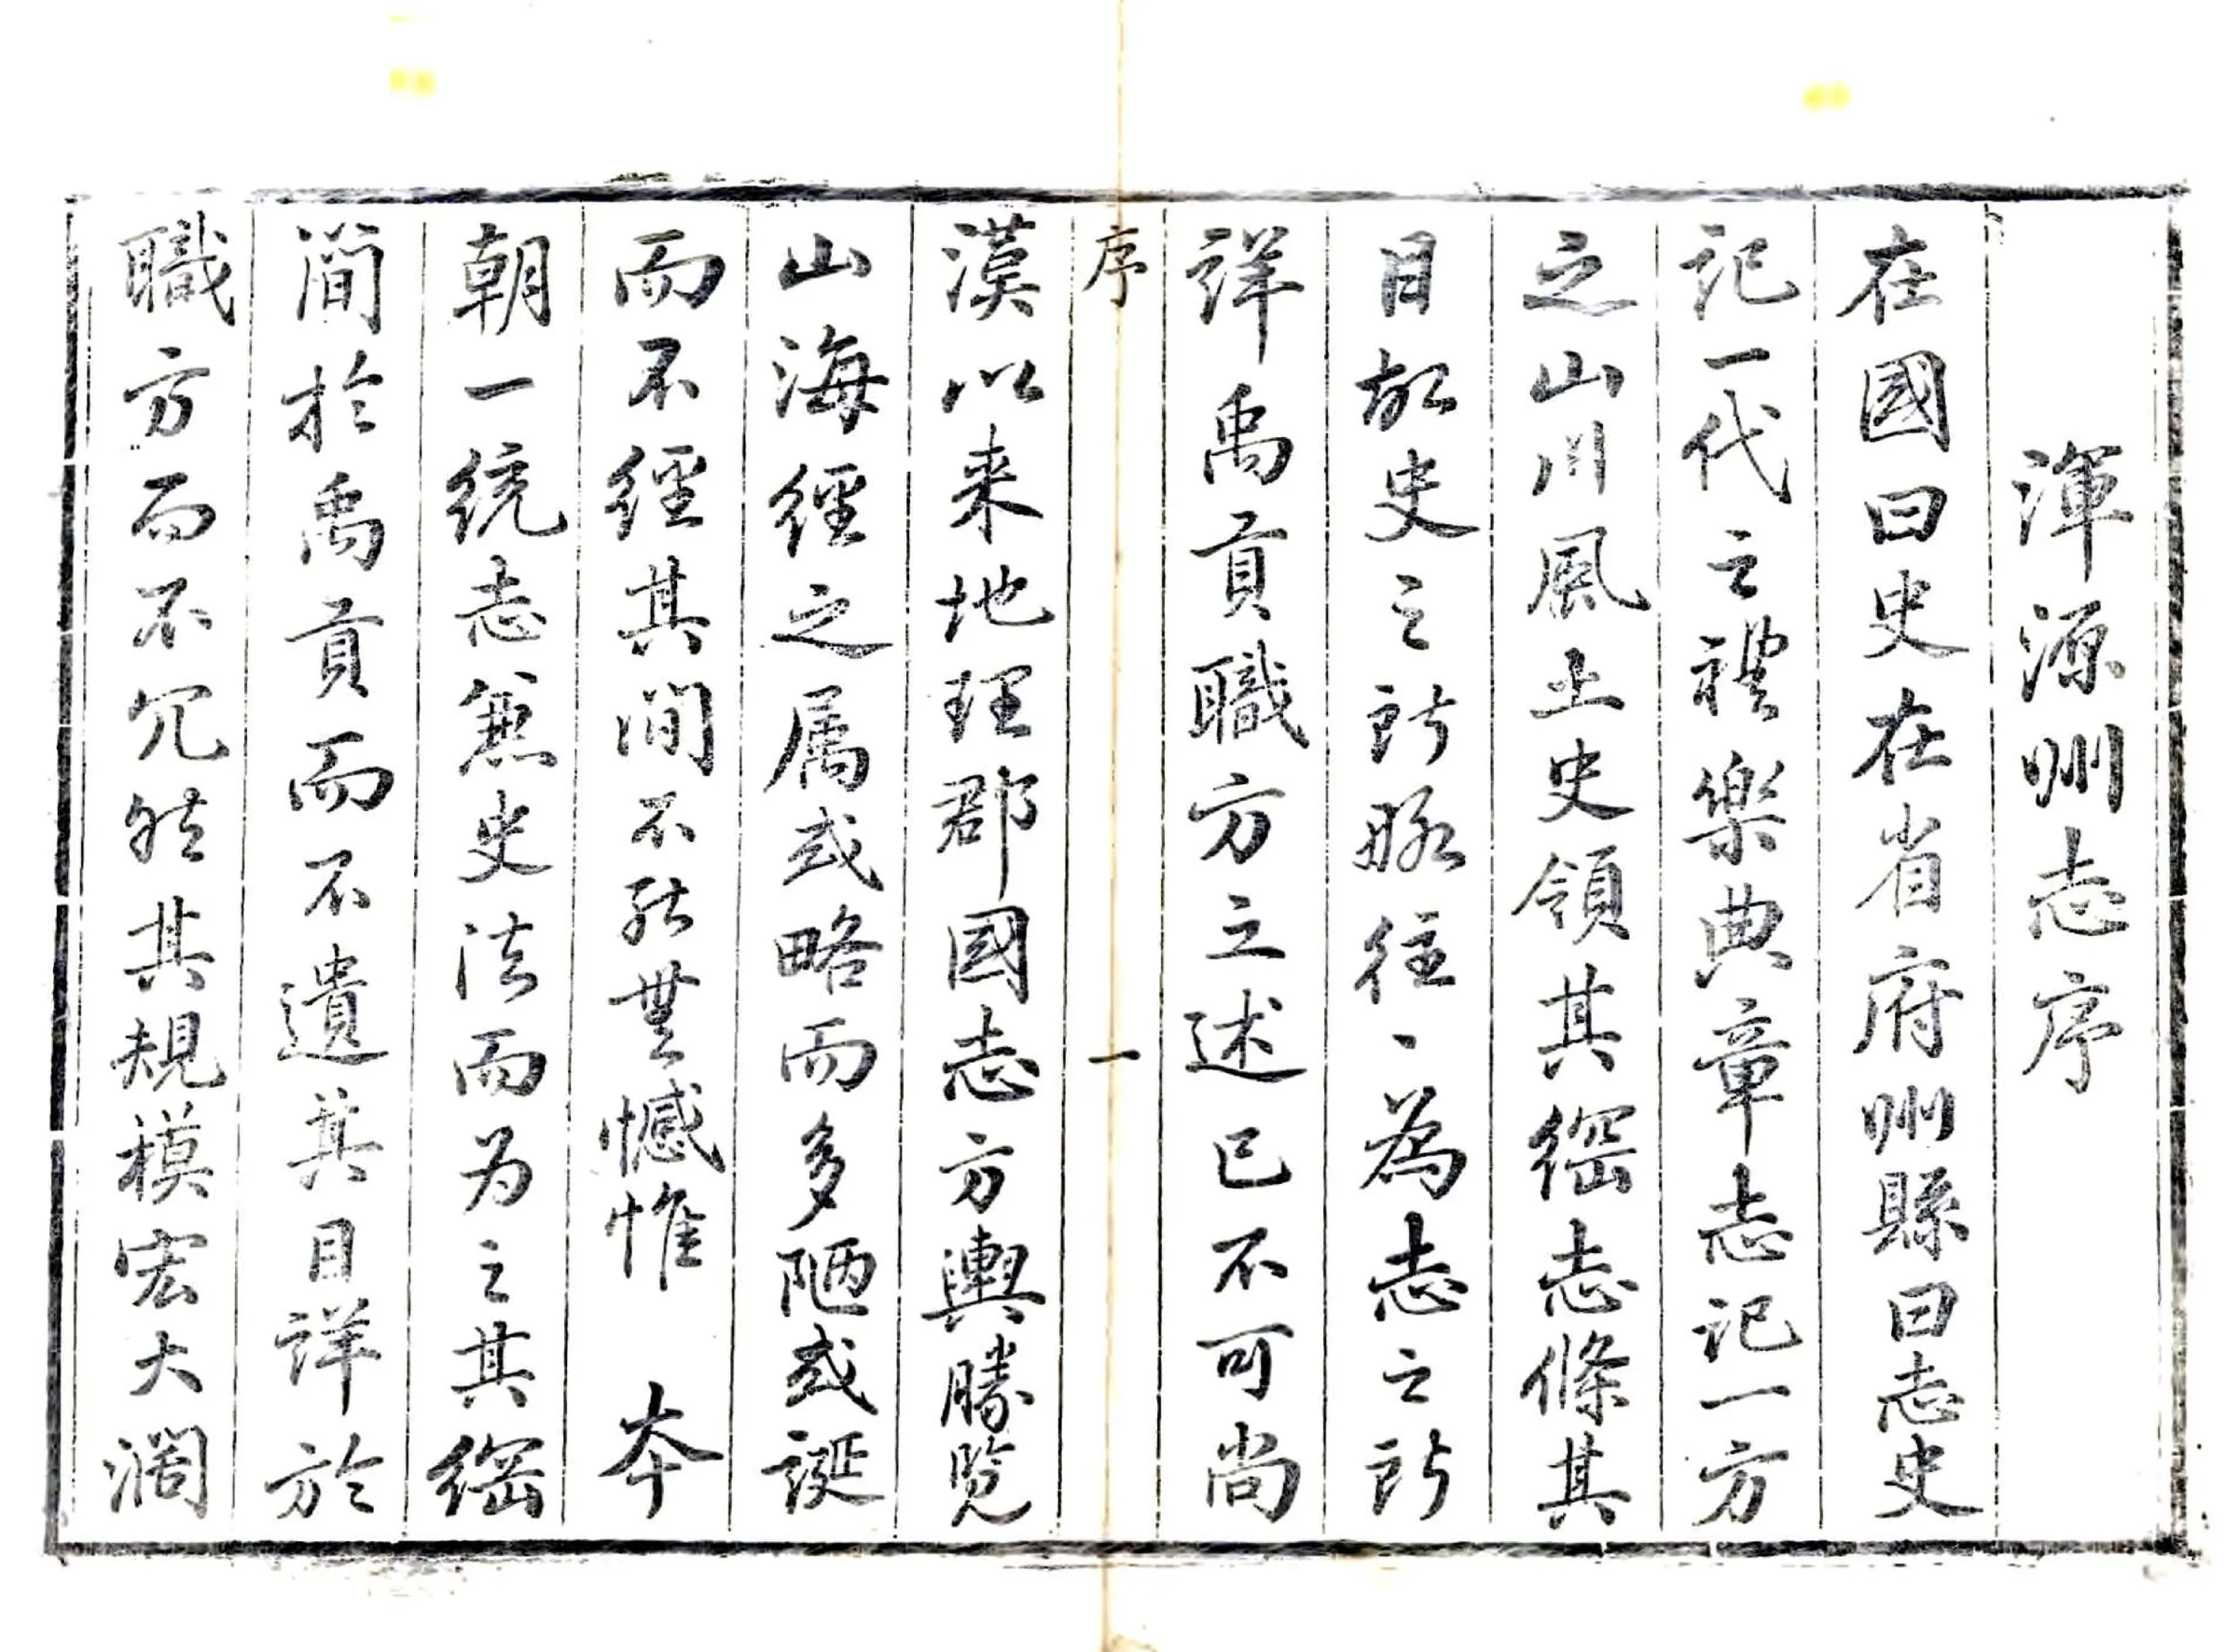 渾源州志序
在國曰史在省府州縣曰志史
記一代之禮樂典章志記一方
之山川風土史領其綱志條其
目故史之所略往丶為志之所
詳禹貢職方之述已不可尚
序 一
漢以来地理郡國志方輿勝覧
山海經之属或略而多陋或誕
而不經其間不能無憾惟 本
朝一统志兼史法而为之其綱
簡於禹貢而不遺其目詳於
職方而不冗然其規模宏大濶